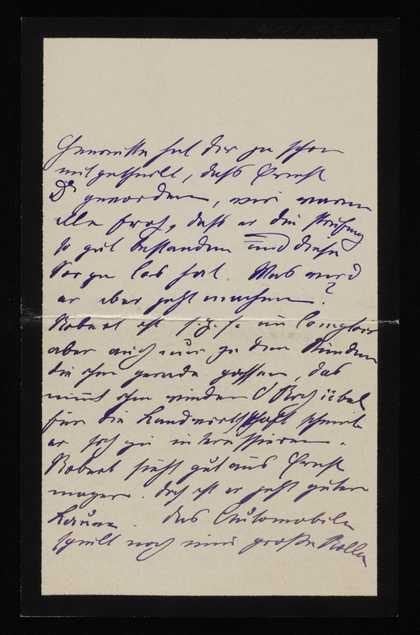 Henriette hat dir ja schon
mitgetheilt, daß Ernst
Dr geworden, wir waren
alle froh, daß er die Prüfung
so gut bestanden und diese
Sorge los hat. Was wird
er aber jetzt machen?
Robert ist im Comptoir
aber auch nur zu den Stunden
die ihm gerade passen, das
nimmt ihm wieder O
für die Landwirthschaft scheint
er sich zu interessiren.
Robert sieht gut aus Ernst
mager. doch ist er jetzt guter
Laune. Das Automobile
spielt noch eine große Rolle